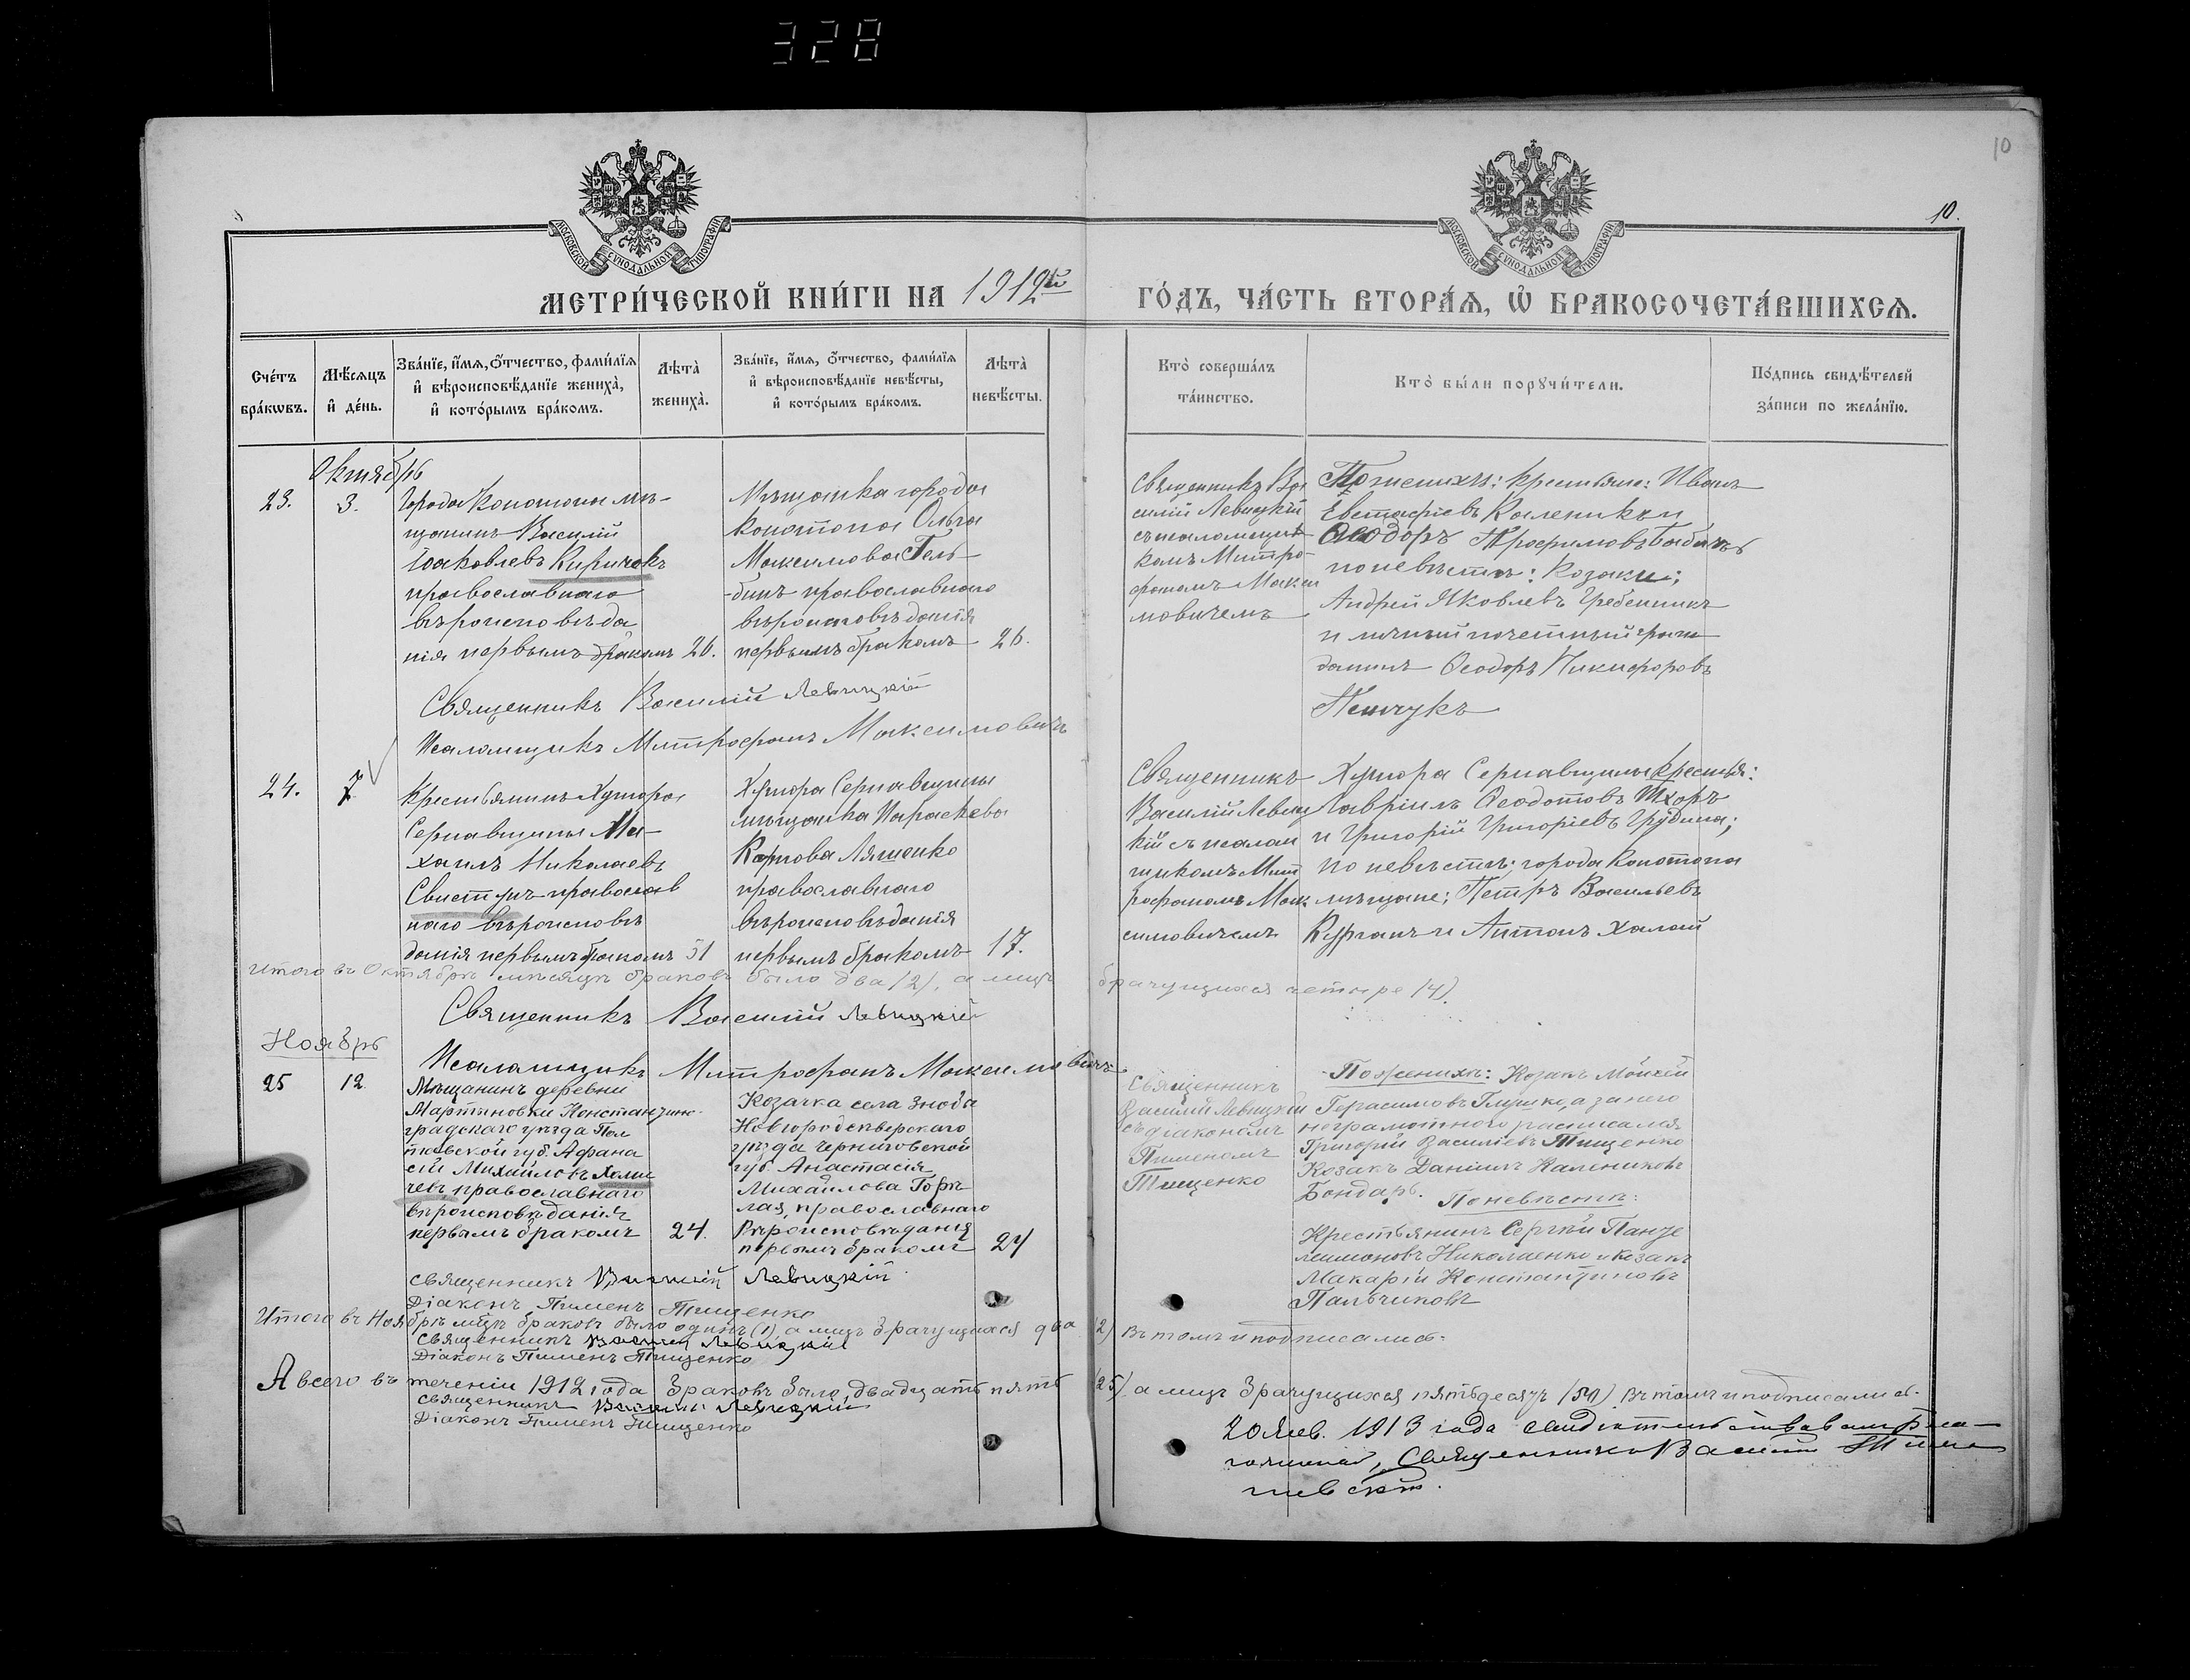 328
10
10.
МОСКОВСКОЙ СѴНОДАЛЬНОЙ ТИПОГРАФІИ
МОСКОВСКОЙ СѴНОДАЛЬНОЙ ТИПОГРАФІИ
МЕТРИ́ЧЕСКОЙ КНИ́ГИ НА 1912й
ГО́ДЪ, ЧА́СТЬ ВТОРА́Я, Ѿ БРАКОСОЧЕТА́ВШИХСЯ.
Сче́тъ бра́кѡвъ.
Мѣ́сяцъ и҆ де́нь.
Зва́нїе, и҆́мя, ѻ҆́тчество, фами́лїя и҆ вѣроисповѣ́данїе жениха̀, и҆ кото́рымъ бра́комъ.
Лѣта̀ жениха̀.
Зва́нїе, и҆́мя, ѻ҆́тчество, фами́лїя и҆ вѣроисповѣ́данїе невѣ́сты, и҆ кото́рымъ бра́комъ.
Лѣта̀ невѣ́сты.
Кто̀ соверша́лъ та́инство.
Кто̀ бы́ли порꙋчи́тели.
По́дпись свидѣ́телей за́писи по жела́нїю.
Октябрь
23.
3.
Города Конотопа мѣ-
щанинъ Василій
Іаковлевъ Киричокъ
православнаго
вѣроисповѣда
нія первымъ бракомъ 26.
Мѣщанка города
Конотопа Ольга
Максимова Гель-
-бинъ православнаго
вѣроисповѣданія
первымъ бракомъ 26.
Священникъ Ва
силій Левицкій
съ псаломщи
комъ Митро-
фаномъ Макси
мовичемъ
По женихѣ: крестьяне: Иванъ
Евстафіевъ Каленикъ и
Ѳеодоръ Трофимовъ Бабичъ
по невѣстѣ: Козаки;
Андрей Яковлевъ Гребенникъ
и личный почетный граж
данинъ Ѳеодоръ Никифоровъ
Священникъ Василій Левицкій
Псаломщикъ Митрофанъ Максимовичъ
24.
7
Крестьянинъ Хутора
Сернавщины Ми-
хаилъ Николаевъ
Свистунъ православ
наго вѣроисповѣ
данія первымъ бракомъ 31
Хутора Сернавщины
мѣщанка Параскева
Карпова Ляшенко
православнаго
вѣроисповѣданія
первымъ бракомъ 17.
Священникъ
Василій Левиц
кій съ псалом
щикомъ Мит
рофаномъ Мак
симовичемъ
Хутора Сернавщины крестья:
Гавріилъ Ѳеодотовъ Тхоръ
и Григорій Григоріевъ Грудина;
по невѣстѣ; города Конотопа
мѣщане; Петръ Васильевъ
Курганъ и Антонъ Халай
Итого въ Октябрѣ мѣсяцѣ браковъ было два (2), а лицъ брачущихся четыре (4).
Священникъ Василій Левицкій
Псаломщикъ Митрофанъ Максимовичъ
Ноябрь
25
12.
Мѣщанинъ деревни
Мартыновки Константино-
градскаго уѣзда Пол
тавской губ. Афана
сій Михайловъ Хами
чевъ православнаго
вѣроисповѣданія
первымъ бракомъ 24.
Козачка села Знобь
Новгородсѣверскаго
уѣзда Черниговской
губ. Анастасія
Михайлова Горѣ
лая, православнаго
вѣроисповѣданія
первымъ бракомъ 24
Священникъ
Василій Левицкій
съ діакономъ
Пименомъ
Тищенко
По женихѣ: Козакъ Моисей
Герасимовъ Глушко, а за него
неграмотнаго расписался
Григорій Василіевъ Тищенко
Козакъ Даніилъ Калениковъ
Бондарь. По невѣстѣ:
Крестьянинъ Сергѣй Панте
леимоновъ Николаенко и козакъ
Макарій Константиновъ
Пальчиковъ
Священникъ Василій Левицкій
Діаконъ Пименъ Тищенко
Итого въ Ноябрѣ м-цѣ браковъ было одинъ (1), а лицъ брачущихся два (2) въ томъ и подписались.
Священникъ Василій Левицкій
Діаконъ Пименъ Тищенко
А всего въ теченіи 1912 года браковъ было, двадцать пять (25), а лицъ брачущихся пятьдесятъ (50) въ томъ и подписались.
Священникъ Василій Левицкій
Діаконъ Пименъ Тищенко
20 Янв. 1913 года свидѣтельствовалъ бла-
гочинный, Священникъ Василій